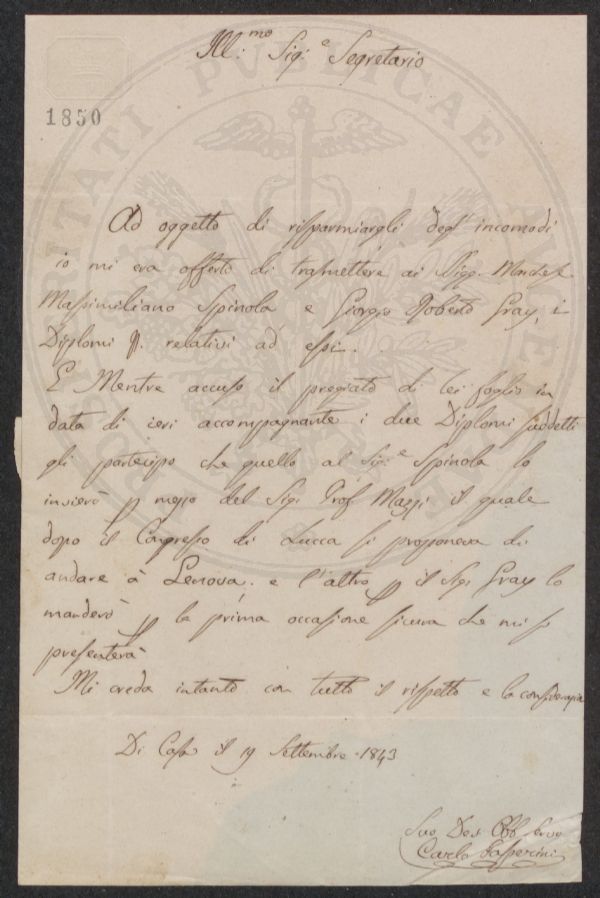 Ill:mo Sig:e Segretario
1850
Ad oggetto di risparmiargli degl' incomodi
io mi era offerto di trasmettere ai Sigg. Marchese
Massimiliano Spinola e Giorgio Roberto Gray, i
Diplomi relativi ad essi.
E Mentre accuso il pregiato di lei foglio in
data di ieri accompagnante i due Diplomi suddetti
gli partecipo che quello al Sig:e Spinola lo
invierò p mezzo del Sig: Prof Mazzi il quale
dopo il Congresso di Lucca si proponeva di
andare à Genova. e l'altro p il Sig: Gray lo
manderò p la prima occasione sicura che mi si
presenterà
Mi creda intanto con tutto il rispetto e la considerazio
Di Casa il 19 Settembre 1843
Suo Dev Obb Servo
Carlo Passerini